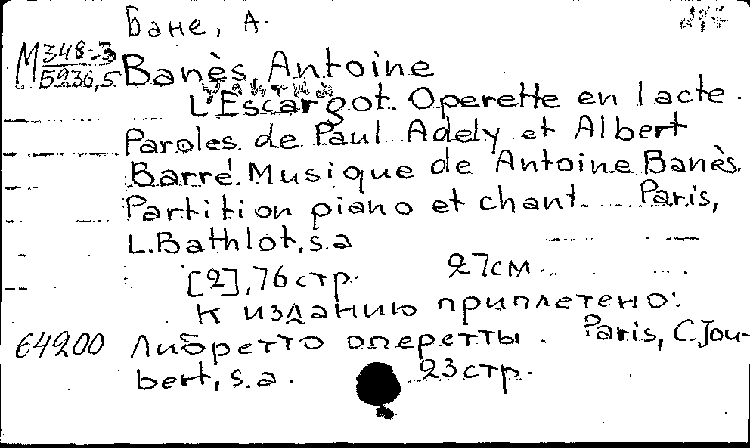 Бане, А.
М 348-3
5236,5
Banès, Antoine
L'Escargot. Operette en 1 acte.
Paroles de Paul Adely et Albert
Barré. Musique de Antoine Banès.
Partition piano et chant. Paris,
L. Bathlot, s.a
[2], 76 стр. 27 см.
К изданию приплетено:
64200 Либретто оперетты. Paris, C. Jou-
bert, s.a. 23 стр.